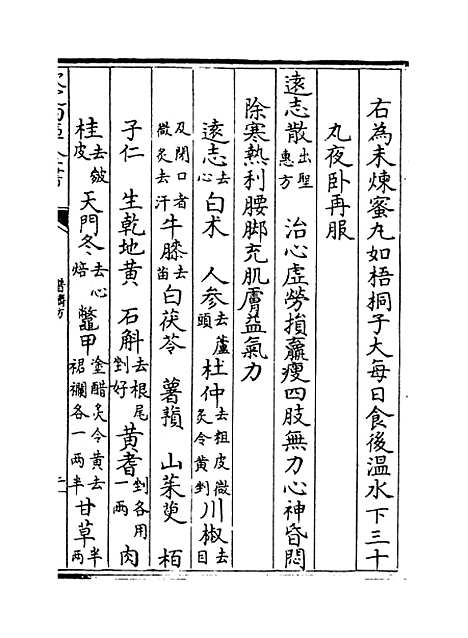 右為末煉蜜丸如梧桐子大每日食後溫水下三十
丸夜卧再服
遠志散出聖惠方 治心虛勞損羸瘦四肢無力心神昏悶
除寒熱利腰脚充肌膚益氣力
遠志去心白术 人參去蘆頭杜仲去粗皮微炙令黄剉川椒去目
及閉口者微炙去汗牛膝去苗白茯苓 薯蕷 山茱萸 栢
子仁 生乾地黄 石斛去根尾剉好黄耆剉各用一兩肉
桂去皴皮天門冬去心焙鼈甲塗醋炙令黄去裙襴各一兩半甘草半兩
普濟方